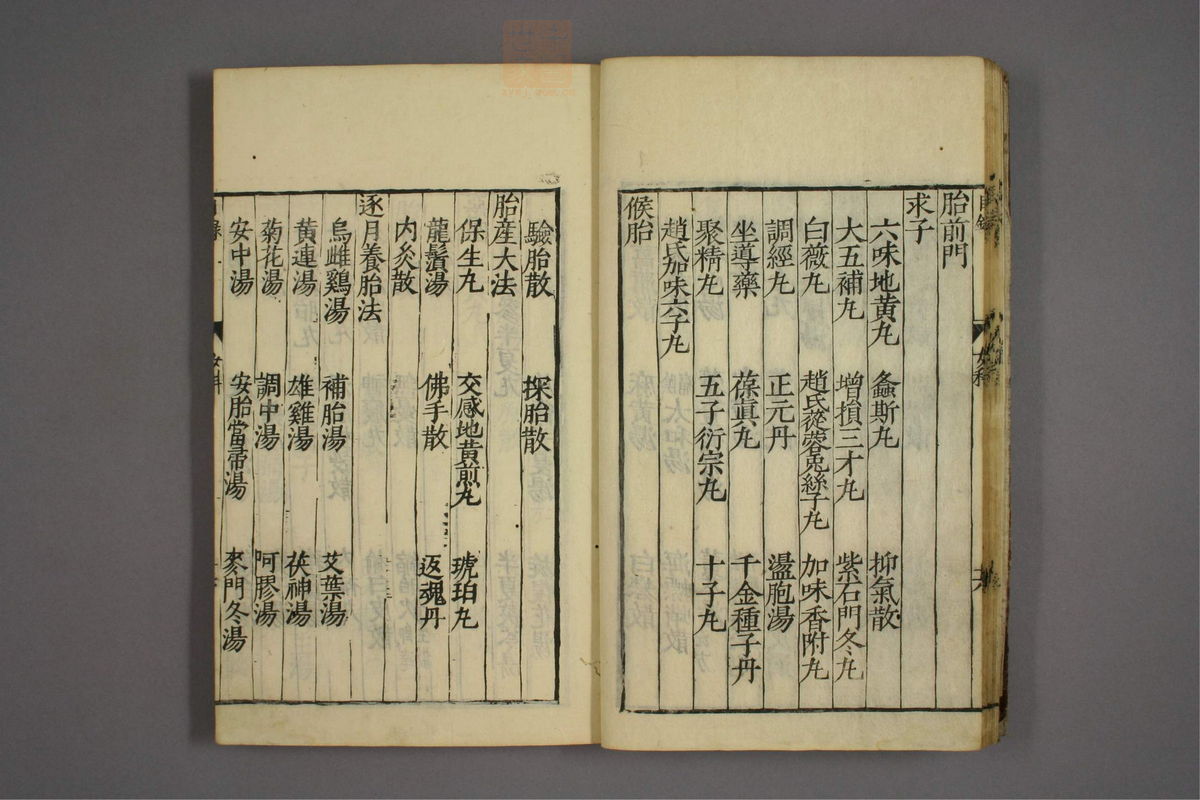 胎前門
求子
六味地黄丸 螽斯丸 抑氣散
大五補丸 增損三才丸 紫石門冬丸
白薇丸 趙氏蓯蓉兎絲子丸 加味香附丸
調經丸 正元丹 盪胞湯
坐導藥 葆眞丸 千金種子丹
聚精丸 五子衍宗丸 十子丸
趙氏加味六子丸
候胎
驗胎散 探胎散
胎産大法
保生丸 交感地黄煎丸 琥珀丸
龍鬚湯 佛手散 返魂丹
内灸散
逐月養胎法
烏雌鷄湯 補胎湯 艾葉湯
黄連湯 雄雞湯 茯神湯
菊花湯 調中湯 阿膠湯
安中湯 安胎當帰湯 麥門冬湯